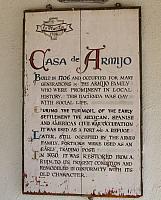 La Placita
Casa de Armijo
Built in 1706 and occupied for many
generations by the Armijo family
who were prominent in local
history. This hacienda was gay
with social life.
During the turmoil of the early
settlement the Mexican, Spanish
and American Civil War occupation
it was used as a fort and a service
Later, still occupied by the Armijo
family, portions were used as an
early trading post.
In 1930 it was restored from a
ruin to its present condition and
remodeled in conformity with its
old character.